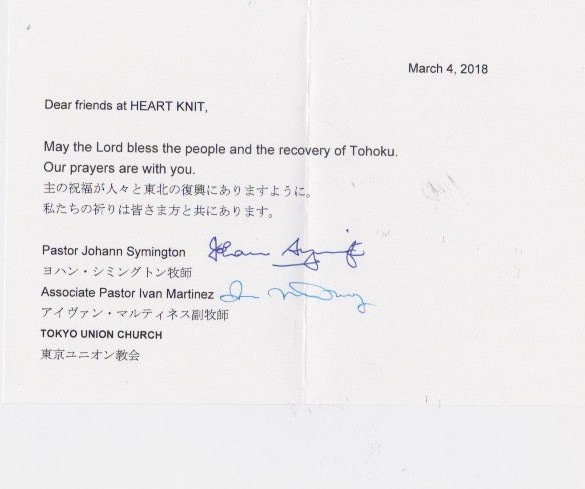 March 4, 2018
Dear friends at HEART KNIT,
May the Lord bless the people and the recovery of Tohoku.
Our prayers are with you.
主の祝福が人々と東北の復興にありますように。
私たちの祈りは皆さま方と共にあります。
Pastor Johann Symington
ヨハン・シミングトン牧師
Associate Pastor Ivan Martinez
アイヴァン・マルティネス副牧師
TOKYO UNION CHURCH
東京ユニオン教会